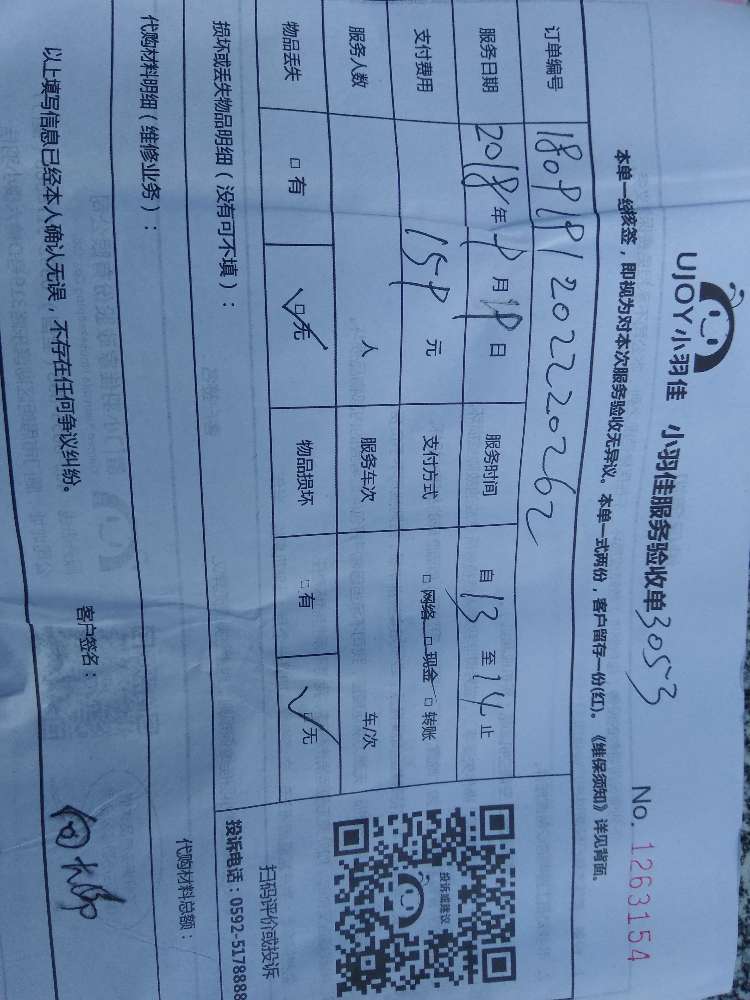 UJOY小羽佳 小羽佳服务验收单3053
No. 1263154
本单一经核签，即视为对本次服务验收无异议。本单一式两份，客户留存一份(红)。《维保须知》详见背面。
订单编号 1809191202220262
服务日期 2018年9月19日 服务时间 自13至14止
支付费用 159元 支付方式 □网络 □现金 □转账
服务人数 人 服务车次 车/次
物品丢失 □有 ☑无 物品损坏 □有 ☑无
损坏或丢失物品明细（没有可不填）：
投诉或建议
扫码评价或投诉
投诉电话：0592-5178888
代购材料明细（维修业务）： 代购材料总额：
以上填写信息已经本人确认无误，不存在任何争议纠纷。 客户签名：